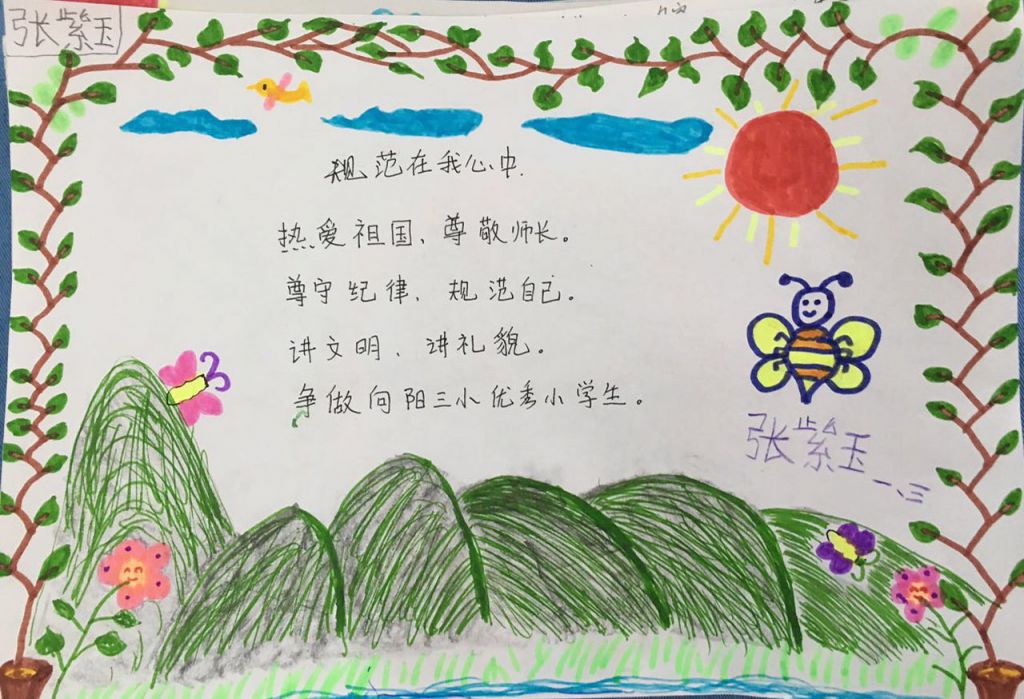 张紫玉
规范在我心中.
热爱祖国、尊敬师长。
尊守纪律、规范自己。
讲文明、讲礼貌。
争做向阳三小优秀小学生。
张紫玉
一、三